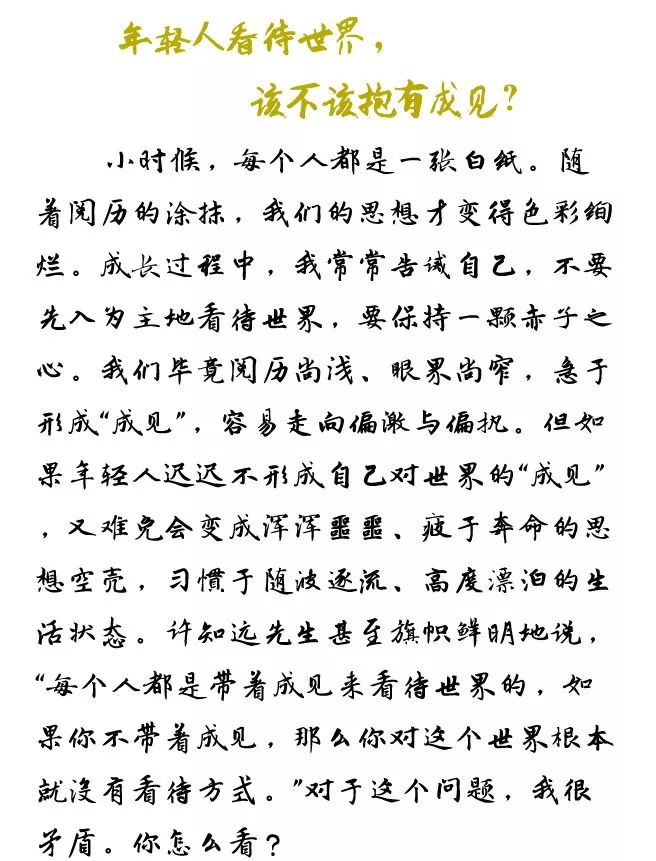 年轻人看待世界，
该不该抱有成见？
小时候，每个人都是一张白纸。随
着阅历的涂抹，我们的思想才变得色彩绚
烂。成长过程中，我常常告诫自己，不要
先入为主地看待世界，要保持一颗赤子之
心。我们毕竟阅历尚浅、眼界尚窄，急于
形成“成见”，容易走向偏激与偏执。但如
果年轻人迟迟不形成自己对世界的“成见”
，又难免会变成浑浑噩噩、疲于奔命的思
想空壳，习惯于随波逐流、高度漂泊的生
活状态。许知远先生甚至旗帜鲜明地说，
“每个人都是带着成见来看待世界的，如
果你不带着成见，那么你对这个世界根本
就没有看待方式。”对于这个问题，我很
矛盾。你怎么看？